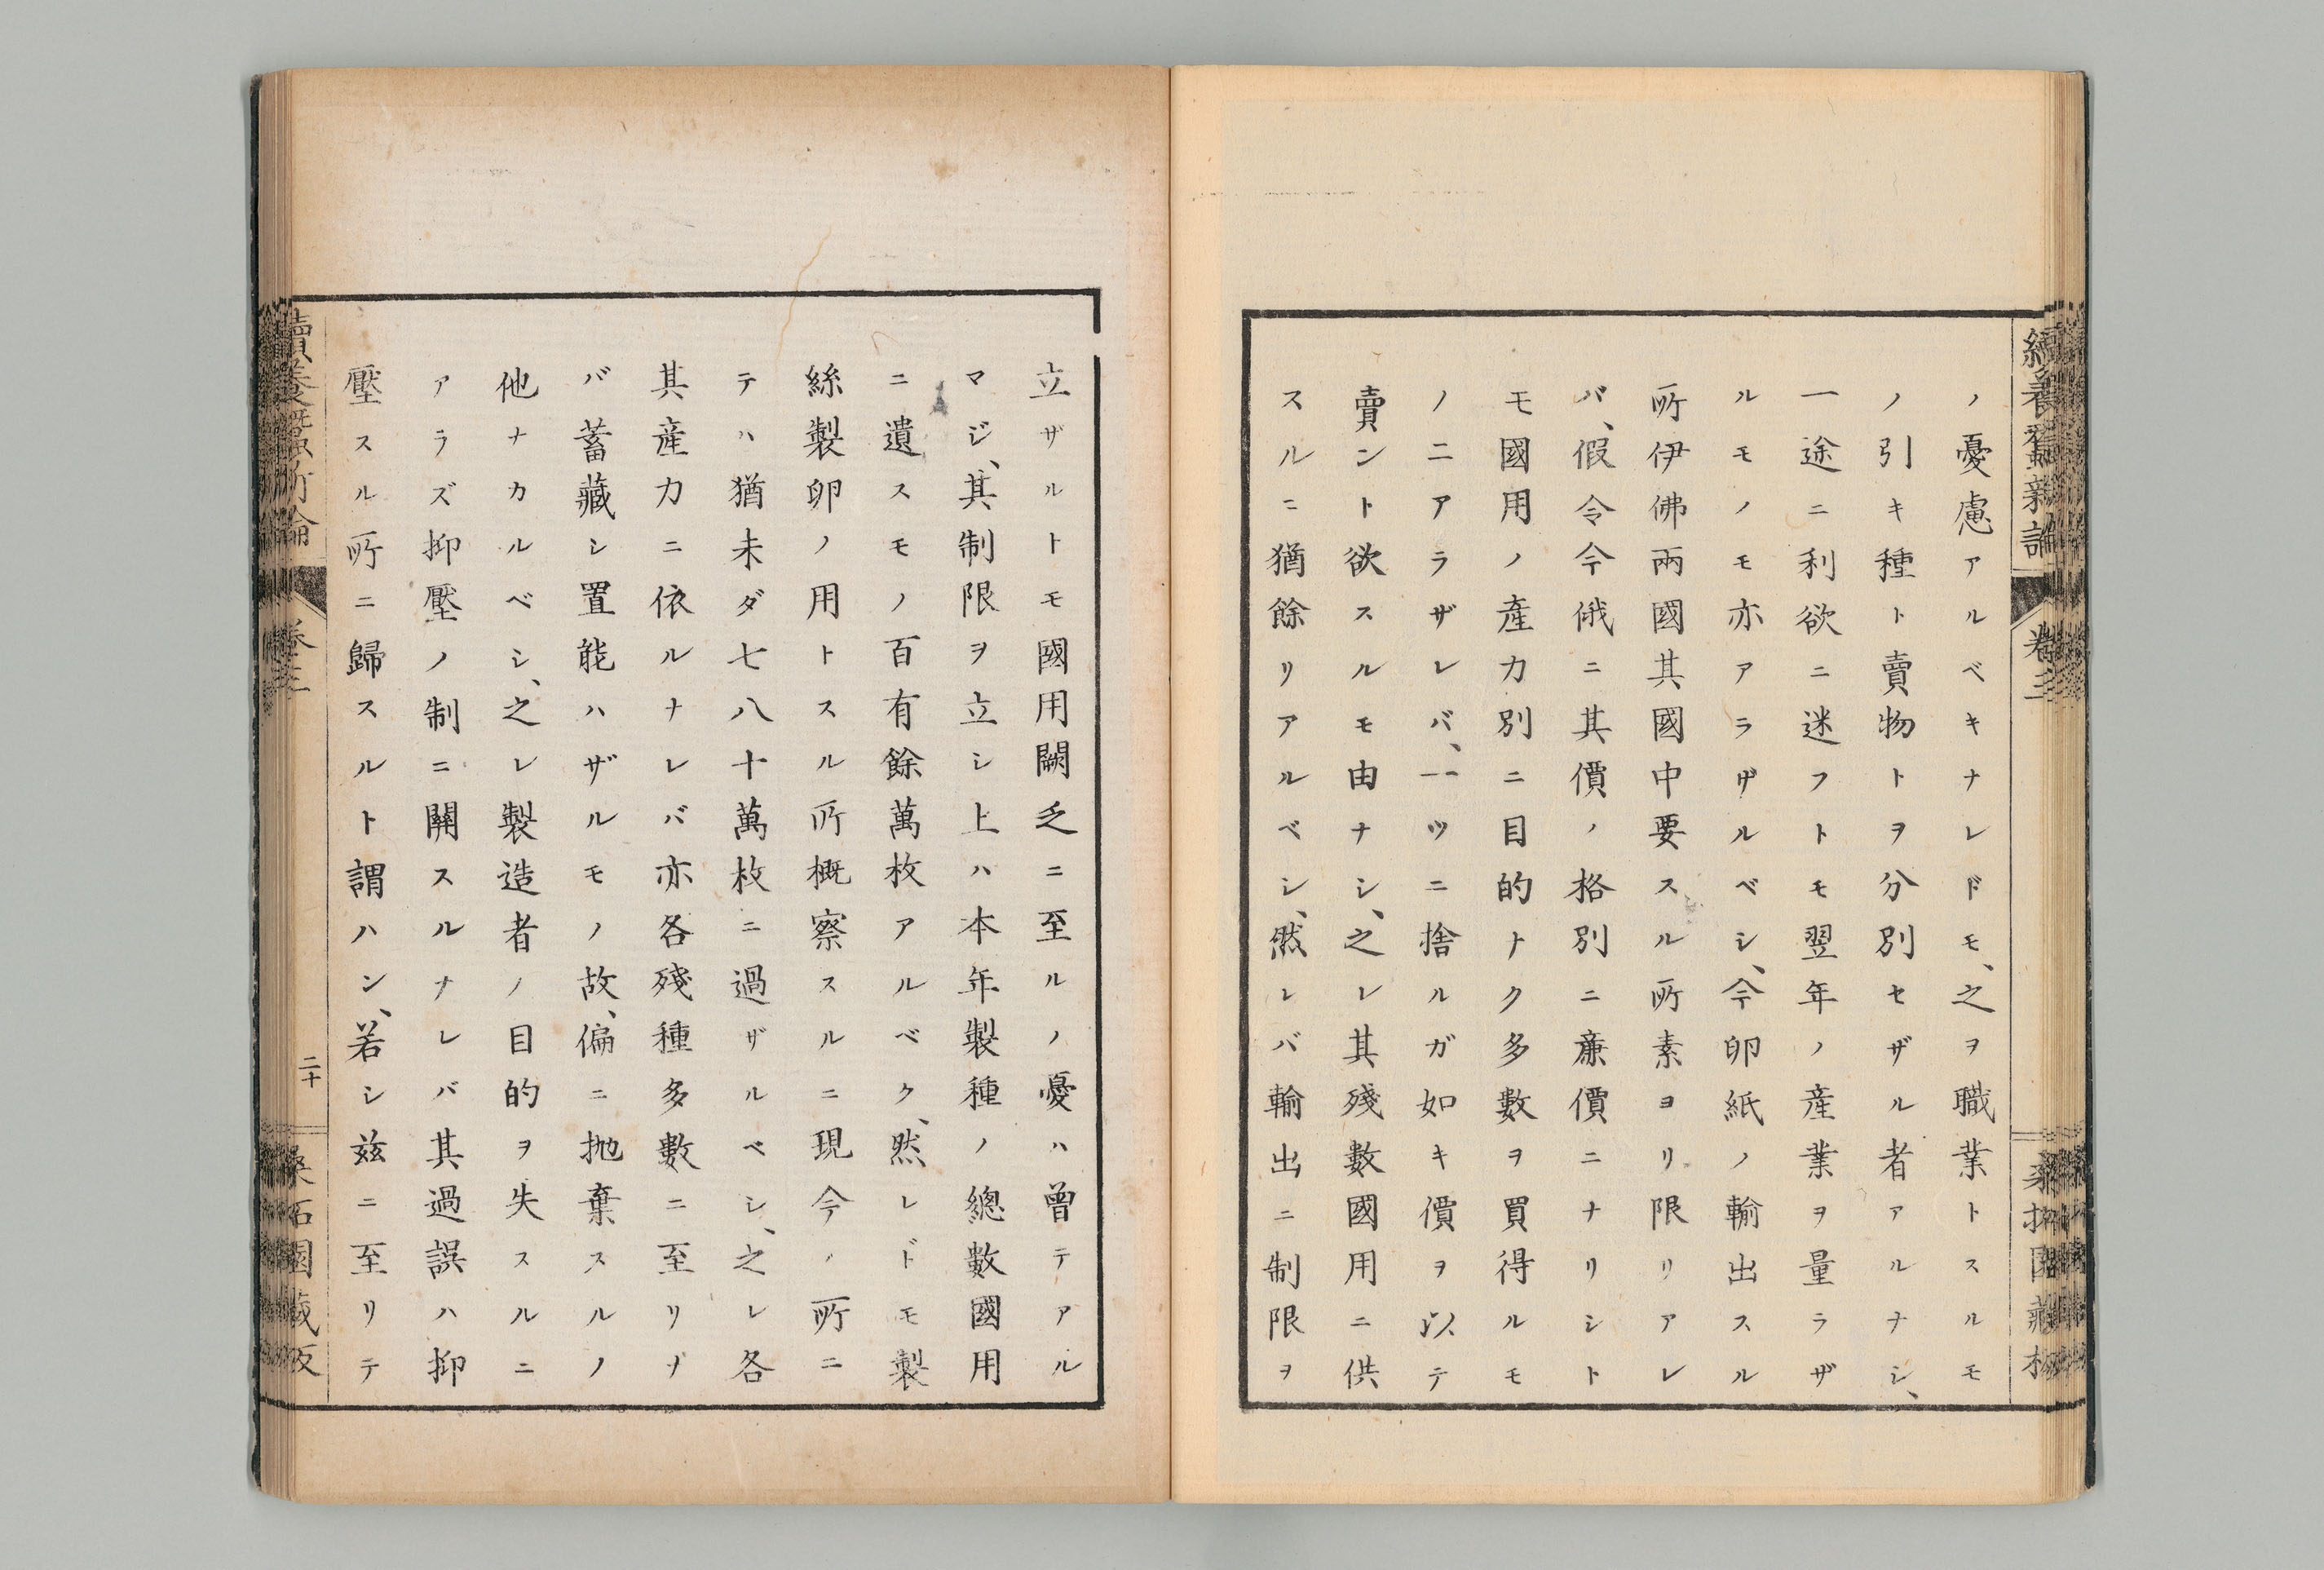 續養蠶新論
卷三
桑柘園藏板
ノ憂慮アルベキナレドモ、之ヲ職業トスルモ
ノ引キ種ト賣物トヲ分別セザル者アルナシ、
一途ニ利欲ニ迷フトモ翌年ノ産業ヲ量ラザ
ルモノモ亦アラザルベシ、今卵紙ノ輸出スル
所伊佛兩國其國中要スル所素ヨリ限リアレ
バ、假令今俄ニ其價ノ格別ニ亷價ニナリシト
モ國用ノ産力別ニ目的ナク多數ヲ買得ルモ
ノニアラザレバ、一ツニ捨ルガ如キ價ヲ以テ
賣ント欲スルモ由ナシ、之レ其殘數國用ニ供
スルニ猶餘リアルベシ、然レバ輸出ニ制限ヲ
立ザルトモ國用闕乏ニ至ルノ憂ハ曾テアル
マジ、其制限ヲ立シ上ハ本年製種ノ總數國用
ニ遺スモノ百有餘萬枚アルベク、然レドモ製
絲製卵ノ用トスル所概察スルニ現今ノ所ニ
テハ猶未ダ七八十萬枚ニ過ザルベシ、之レ各
其産力ニ依ルナレバ亦各殘種多數ニ至リナ
バ蓄藏シ置能ハザルモノ故、偏ニ抛棄スルノ
他ナカルベシ、之レ製造者ノ目的ヲ失スルニ
アラズ抑壓ノ制ニ關スルナレバ其過誤ハ抑
壓スル所ニ歸スルト謂ハン、若シ玆ニ至リテ
續養蠶新論
卷三
二十
桑柘園藏板